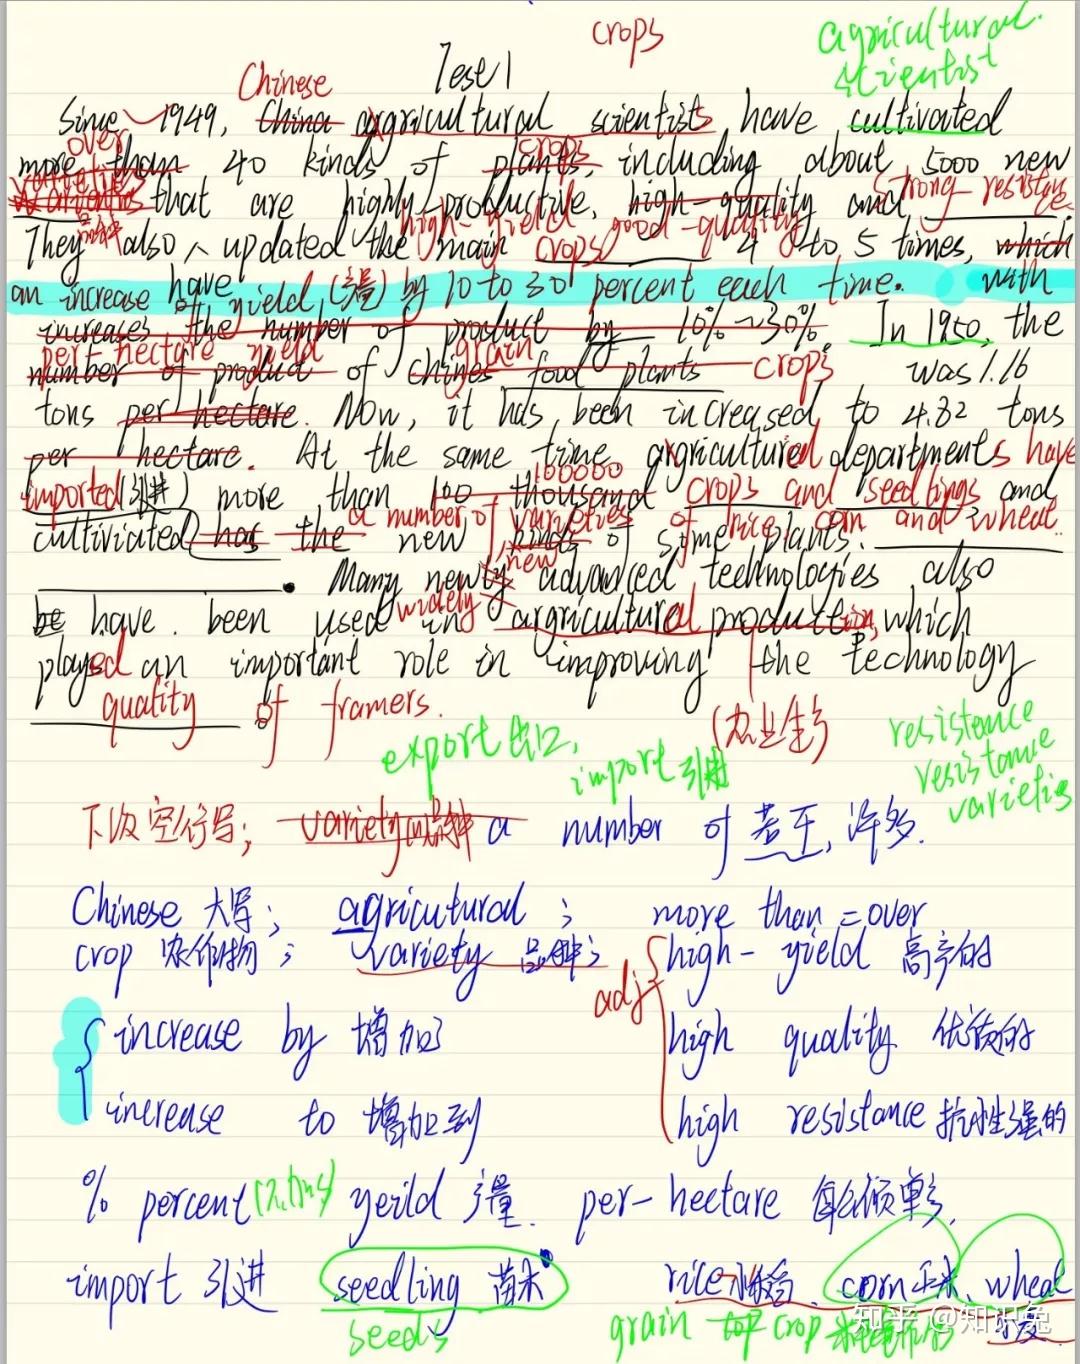 crops
agricultural
scientist
Test 1
Chinese
Since 1949, China agricultural scientists have cultivated
over crops
more than 40 kinds of plants, including about 5000 new
varieties strong-resistance
varieties that are highly-productive, high-quality and
品种 high-yield good-quality
They also updated the main crops 4 to 5 times, which
have
an increase of yield (产量) by 10 to 30 percent each time. with
increases the number of product by 10%~30%. In 1950, the
per-hectare yield grain
number of product of Chines food plants crops was 1.16
tons per hectare. Now, it has been increased to 4.82 tons
per hectare. At the same time argricultured departments have
100000
imported (引进) more than 100 thousand crops and seedlings and
a number of varieties of rice corn and wheat
cultiviated has the new kinds of some plants.
new
Many newly advanced technologies also
widely
be have been used in argricultural production, which
played an important role in improving the technology
quality of framers.
(农业生产)
export 出口,
import 引进
resistance
resistance
varietis
下次空行写; variety 品种 a number of 若干, 许多.
Chinese 大写; agricutural; more than = over
crop 农作物; variety 品种; high-yield 高产的
adj
increase by 增加了 high quality 优质的
increase to 增加到 high resistance 抗性强的
% percent yeild 产量. per-hectare 每公顷单产.
import 引进 seedling 苗木 rice 水稻 、corn 玉米、wheat
seeds grain top crop 小麦
知乎 @知识兔